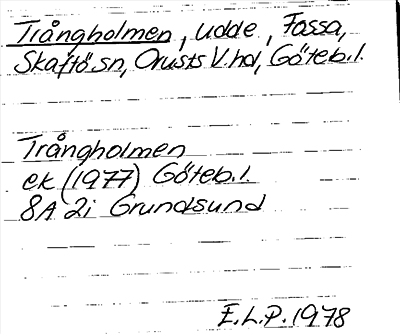 Trångholmen, udde, Fossa,
Skaftö sn, Orusts V. hd, Göteb.l.
Trångholmen
ek (1977) Göteb.l.
8A 2i Grundsund
E.L.P. 1978